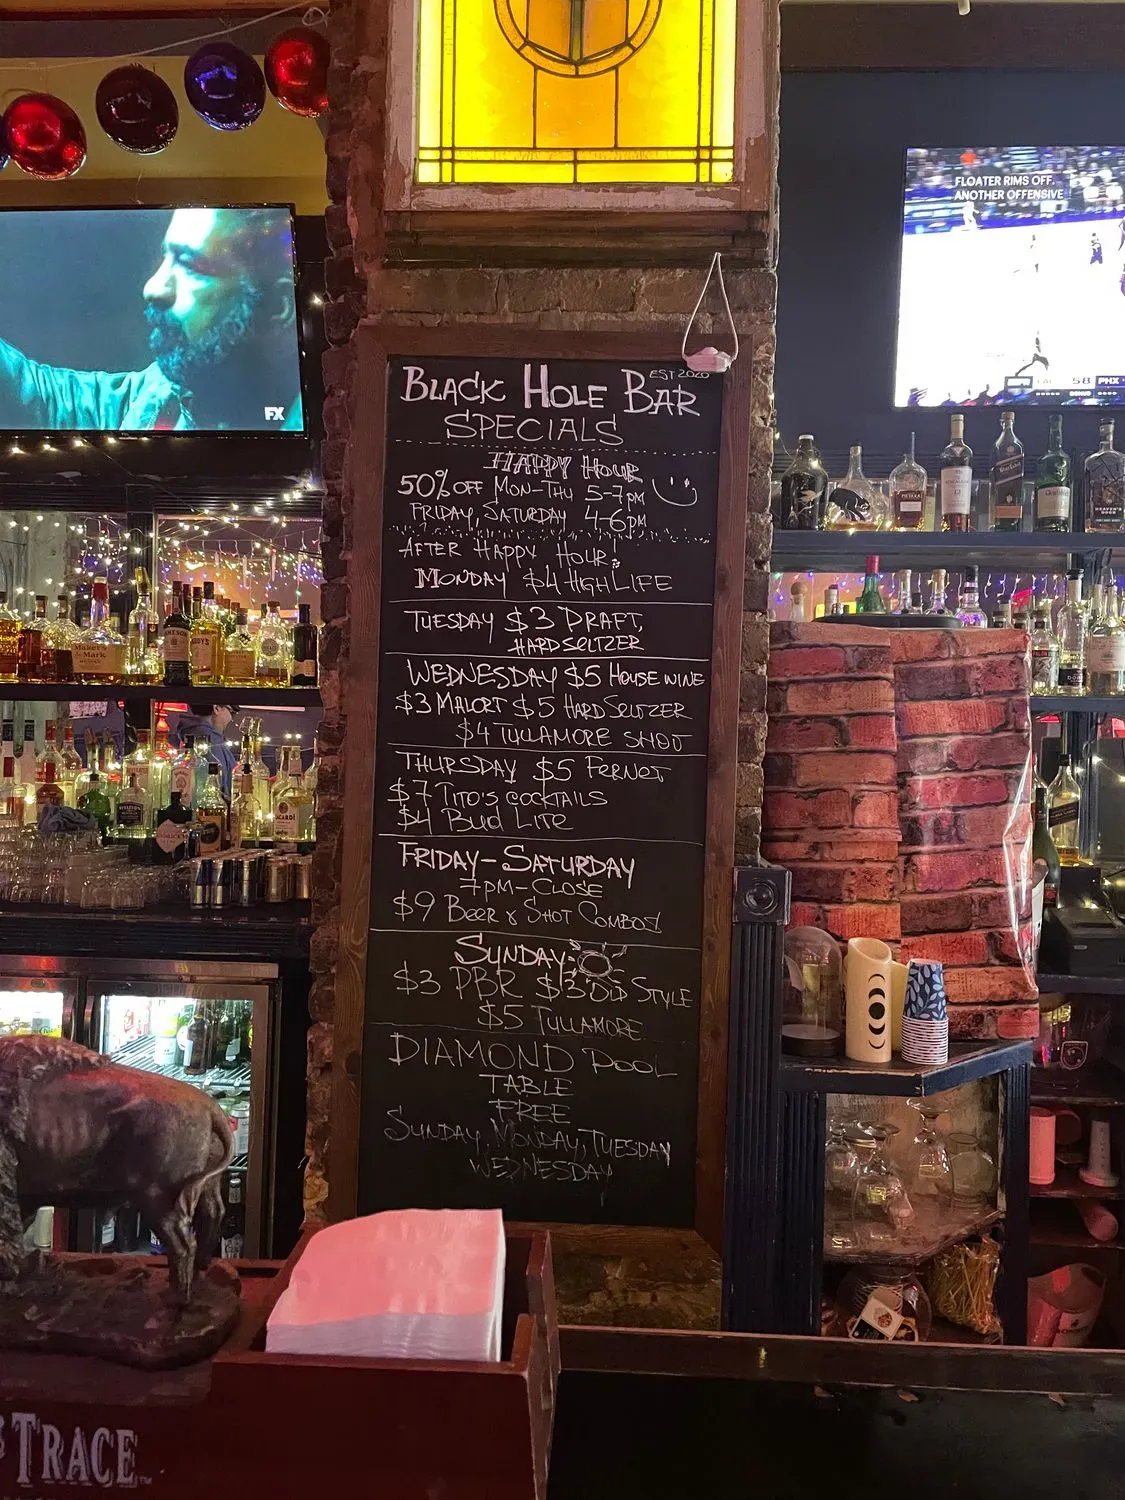 FLOATER RIMS OFF.
ANOTHER OFFENSIVE
58 PHX
FX
BLACK HOLE BAR
EST 2020
SPECIALS
HAPPY HOUR
50% OFF MON-THU 5-7PM
FRIDAY, SATURDAY 4-6PM
AFTER HAPPY HOUR!
MONDAY $4 HIGH LIFE
TUESDAY $3 DRAFT,
HARD SELTZER
WEDNESDAY $5 HOUSE WINE
$3 MALORT $5 HARD SELTZER
$4 TULLAMORE SHOT
THURSDAY $5 FERNET
$7 TITO'S COCKTAILS
$4 BUD LITE
FRIDAY-SATURDAY
7PM-CLOSE
$9 BEER & SHOT COMBOS
SUNDAY
$3 PBR $3 OLD STYLE
$5 TULLAMORE
DIAMOND POOL
TABLE
FREE
SUNDAY, MONDAY, TUESDAY
WEDNESDAY
Maker's
Mark
JAMESON
TRACE